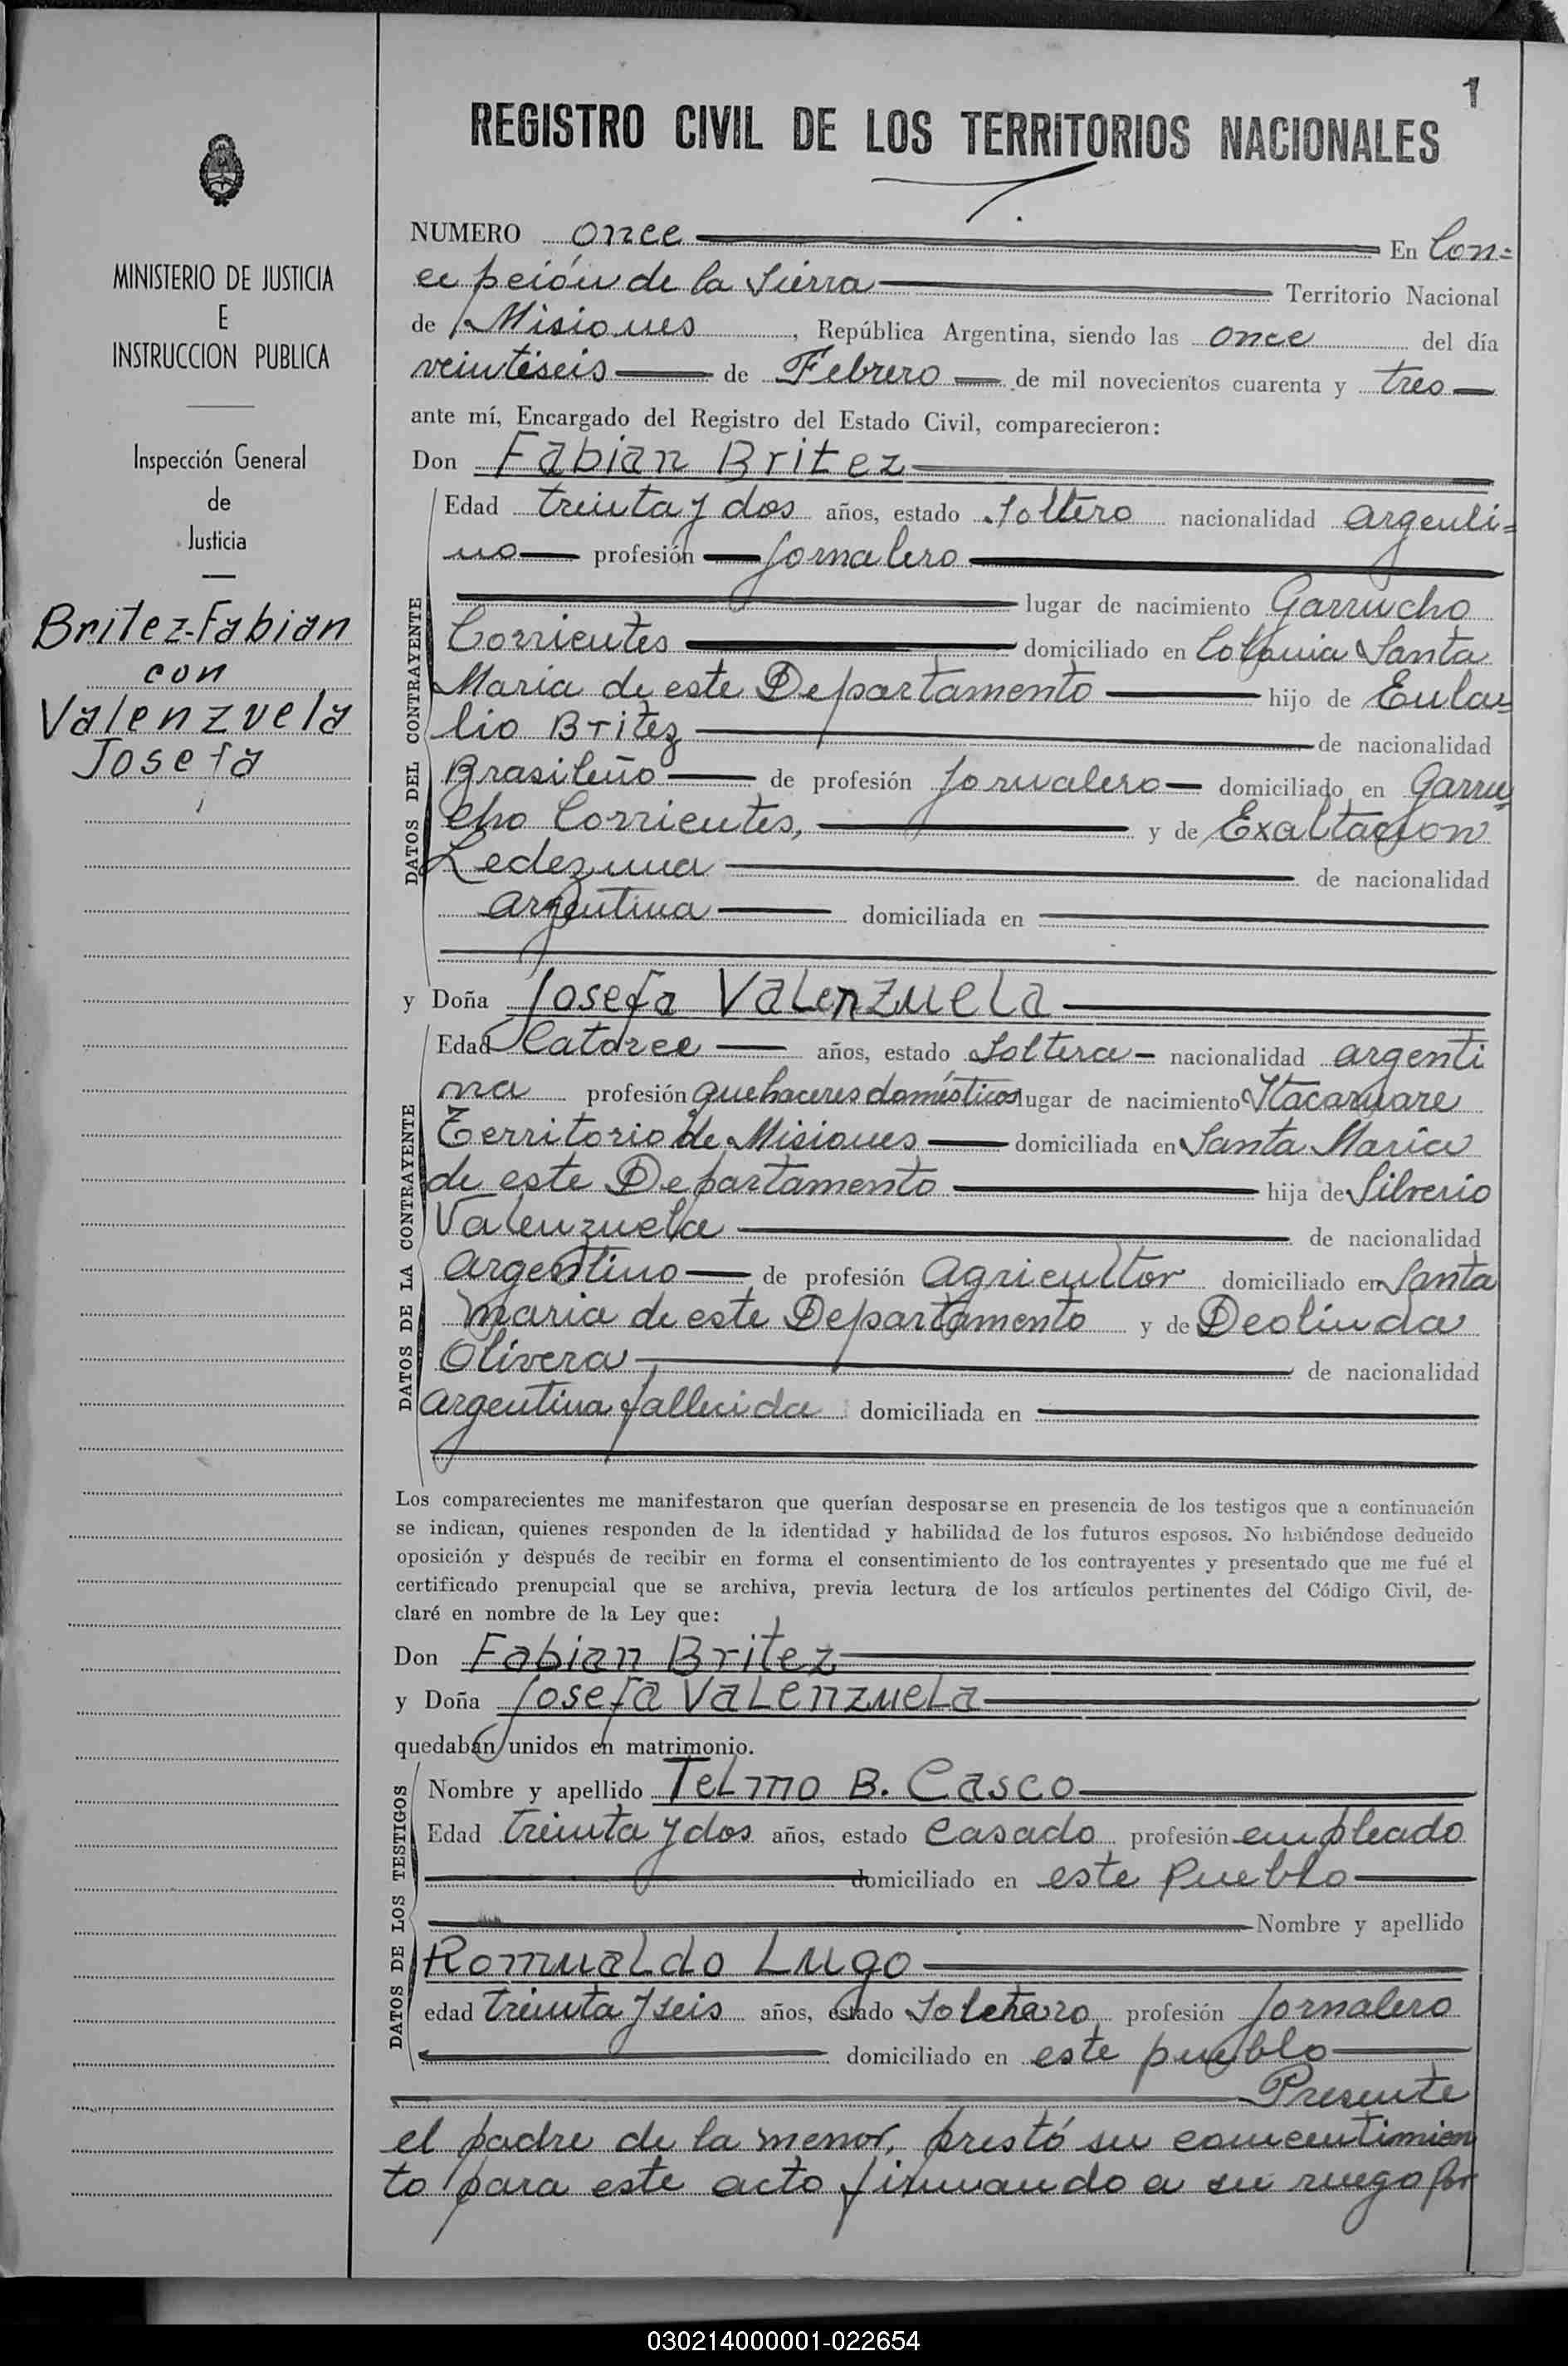 1
REGISTRO CIVIL DE LOS TERRITORIOS NACIONALES
MINISTERIO DE JUSTICIA
E
INSTRUCCION PUBLICA
Inspección General
de
Justicia
Britez-Fabian
con
Valenzuela
Josefa
NUMERO once En Con=
cepción de la Sierra Territorio Nacional
de Misiones, República Argentina, siendo las once del día
veintiseis de Febrero de mil novecientos cuarenta y tres
ante mí, Encargado del Registro del Estado Civil, comparecieron:
Don Fabian Britez
Edad treinta y dos años, estado soltero nacionalidad argenti=
no profesión Jornalero
lugar de nacimiento Garrucho
Corrientes domiciliado en Colonia Santa
Maria de este Departamento hijo de Eula=
lio Britez de nacionalidad
Brasileño de profesión Jornalero domiciliado en Garru=
cho Corrientes, y de Exaltacion
Ledezma de nacionalidad
argentina domiciliada en
DATOS DEL CONTRAYENTE
y Doña Josefa Valenzuela
Edad Catorce años, estado Soltera nacionalidad argenti
na profesión quehaceres domésticos lugar de nacimiento Itacaruare
Territorio de Misiones domiciliada en Santa María
de este Departamento hija de Silverio
Valenzuela de nacionalidad
argentino de profesión Agricultor domiciliado en Santa
maria de este Departamento y de Deolinda
Olivera de nacionalidad
argentina fallecida domiciliada en
DATOS DE LA CONTRAYENTE
Los comparecientes me manifestaron que querían desposarse en presencia de los testigos que a continuación
se indican, quienes responden de la identidad y habilidad de los futuros esposos. No habiéndose deducido
oposición y después de recibir en forma el consentimiento de los contrayentes y presentado que me fué el
certificado prenupcial que se archiva, previa lectura de los artículos pertinentes del Código Civil, de-
claré en nombre de la Ley que:
Don Fabian Britez
y Doña Josefa Valenzuela
quedaban unidos en matrimonio.
Nombre y apellido Telmo B. Casco
Edad treinta y dos años, estado casado profesión empleado
domiciliado en este pueblo
Nombre y apellido
Romualdo Lugo
edad treinta y seis años, estado profesión Jornalero
domiciliado en este pueblo
DATOS DE LOS TESTIGOS
Presente
el padre de la menor, prestó su concentimien
to para este acto firmando a su ruego por
030214000001-022654